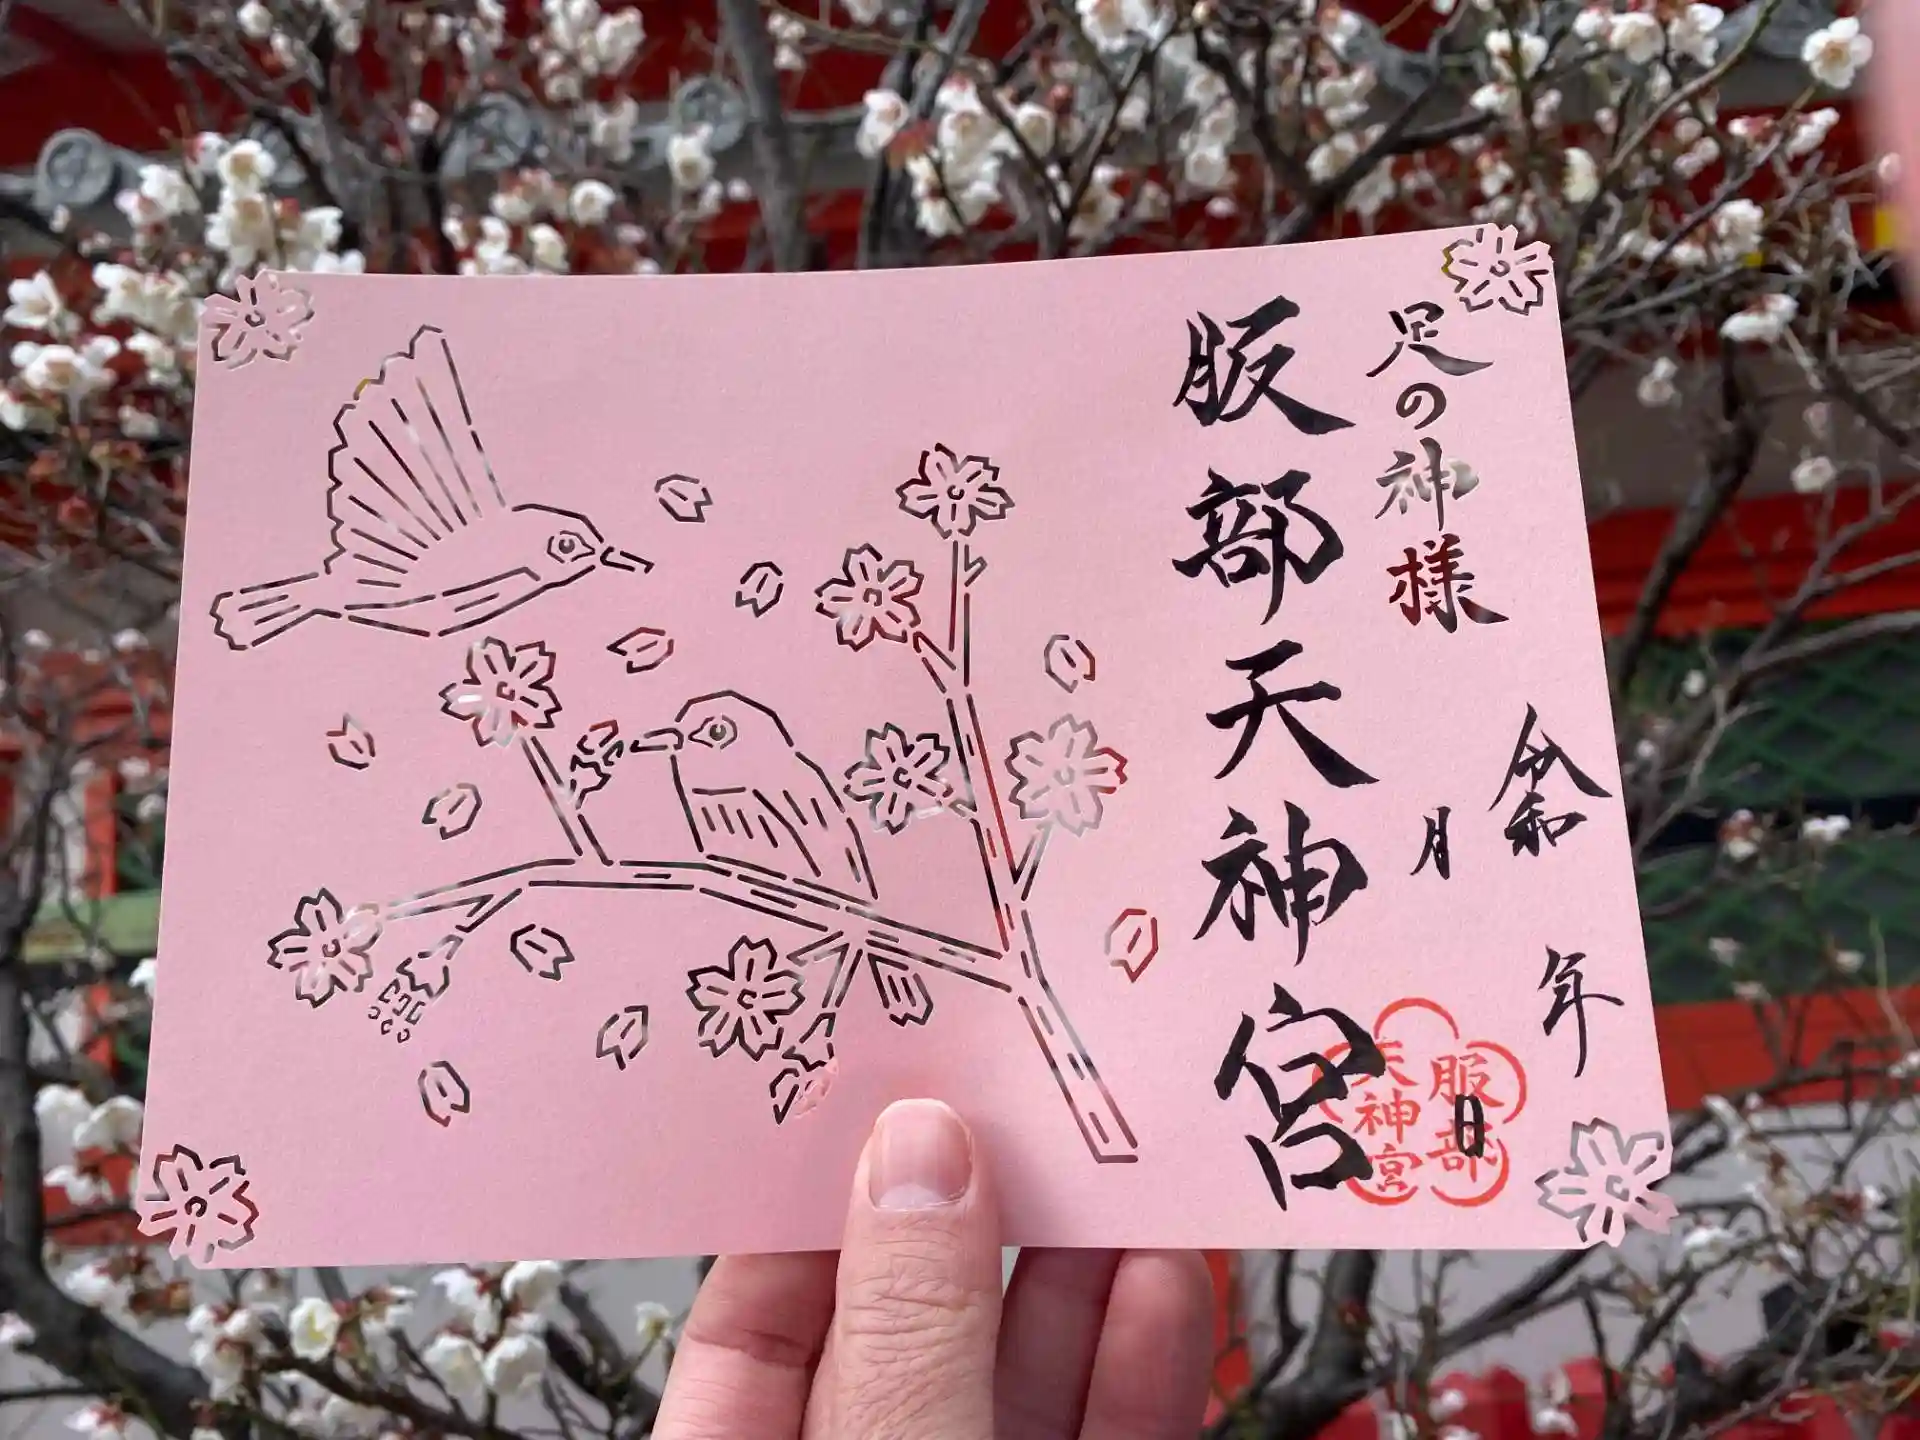 令和
年
月
日
足の神様
服部天神宮
服部
天神宮